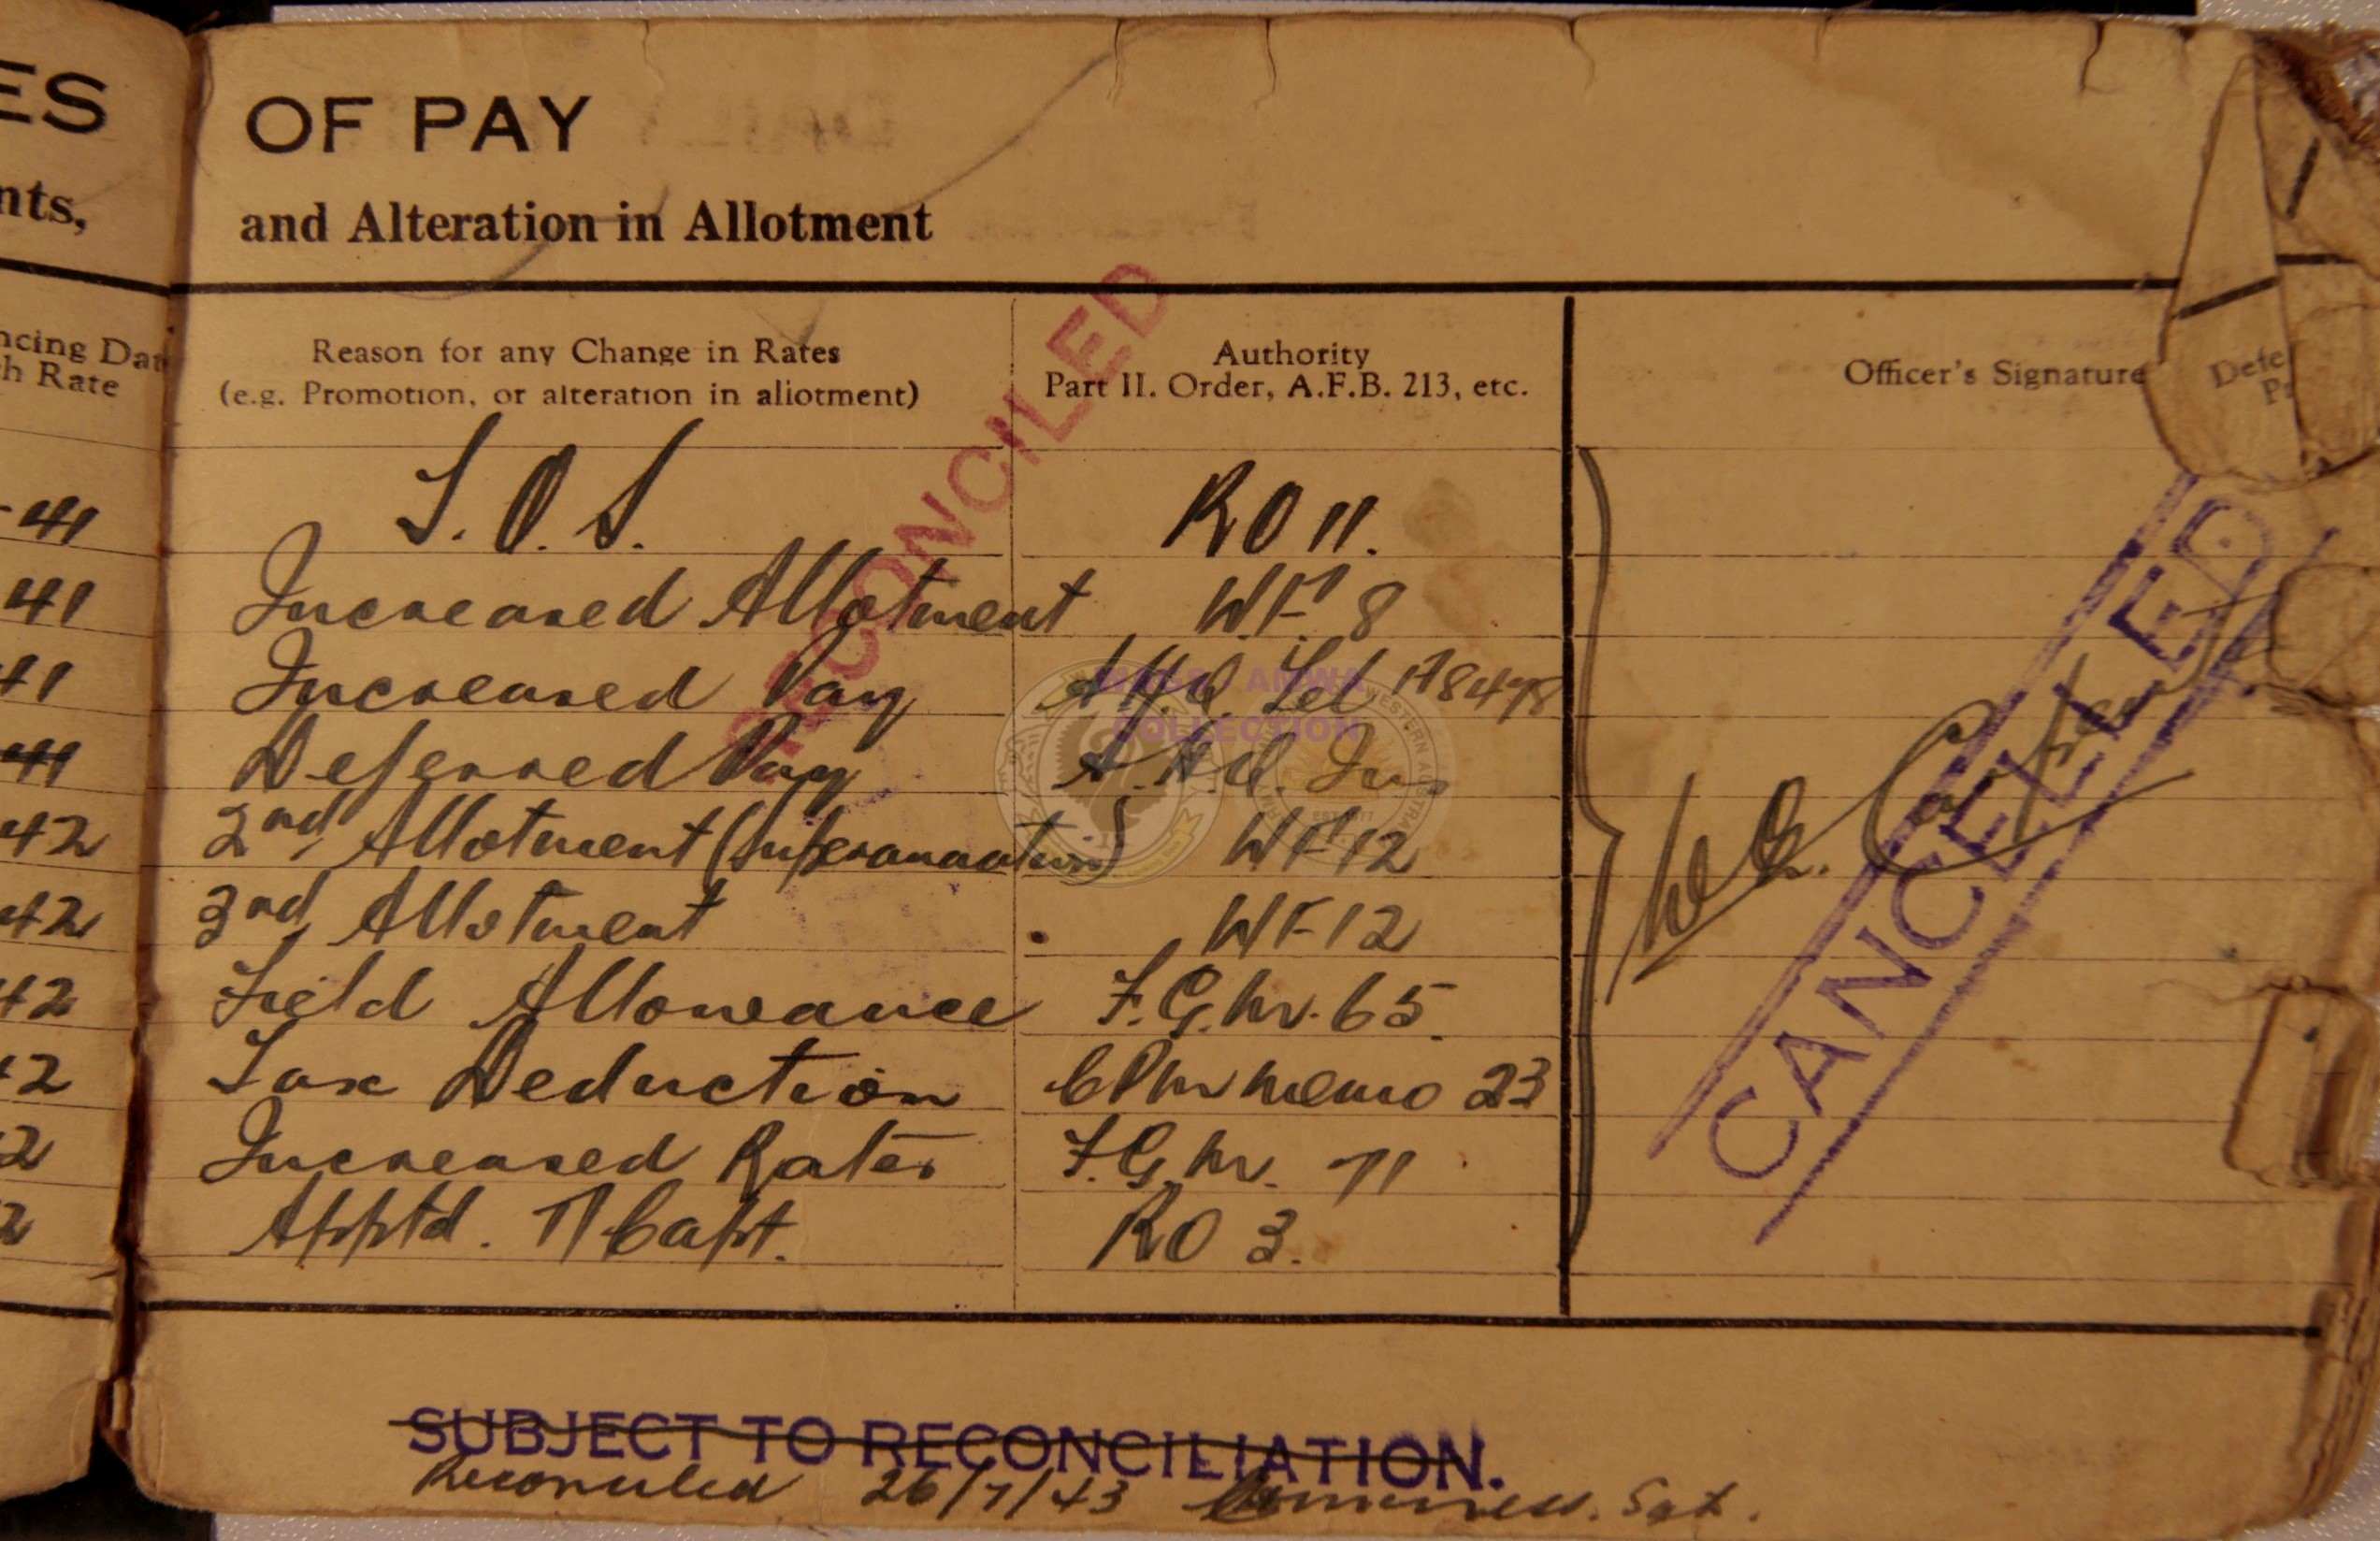 ES OF PAY
nts, and Alteration in Allotment
ncing Dat
h Rate
Reason for any Change in Rates
(e.g. Promotion, or alteration in allotment)
Authority
Part II. Order, A.F.B. 213, etc.
Officer's Signature
Defe
P
RECONCILED
-41 T.O.S. RO 11.
41 Increased Allotment W.F. 8
41 Increased Pay A.H.Q. Tel 18478
41 Deferred Pay A.H.Q.
42 2nd Allotment (Superannuation) WF 12
42 3rd Allotment WF 12
42 Field Allowance F.G.M. 65.
42 Tax Deduction CPM memo 23
2 Increased Rates F.G.M. 71
2 Apptd. T/Capt. RO 3.
CANCELLED
COLLECTION
SUBJECT TO RECONCILIATION.
Reconciled 26/7/43 Sgt.